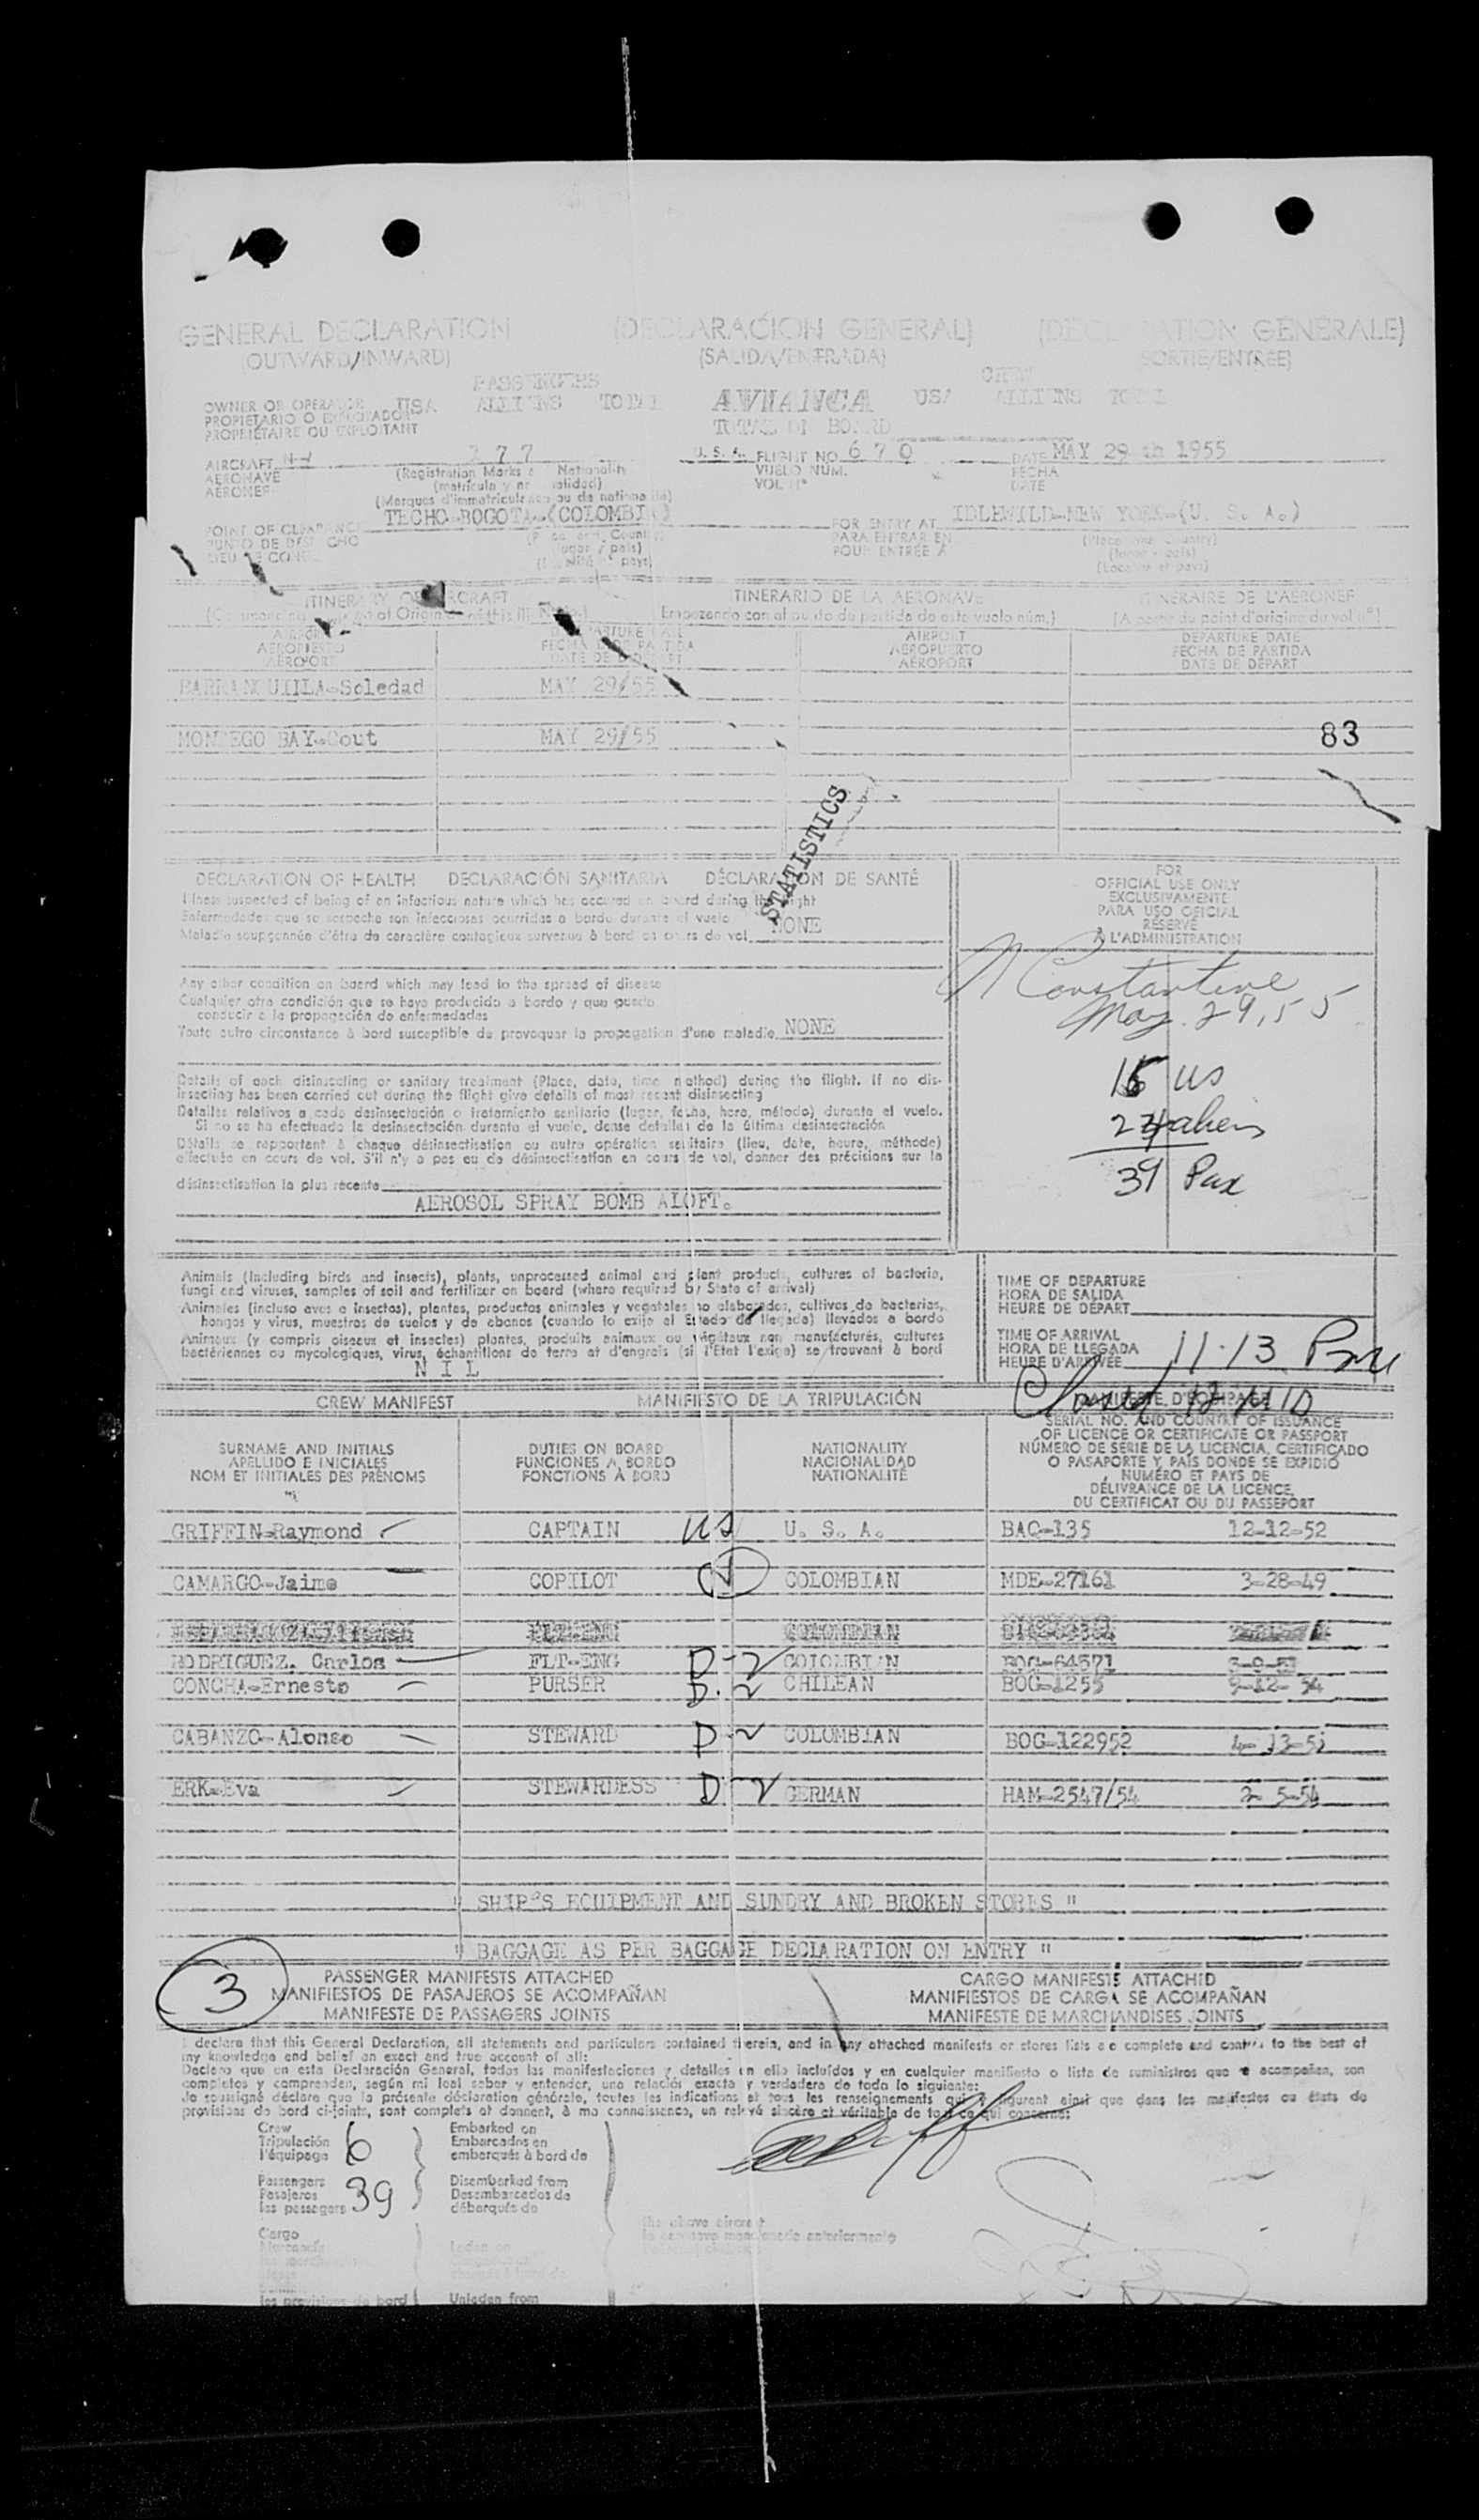 GENERAL DECLARATION (DECLARACION GENERAL) GENERALE)
(OUTWARD/INWARD) (SALIDA/ENTRADA) SORTIE/ENTREE)
PASSENGERS
OWNER OR OPERATOR USA ALLIENS TOTAL AVIANCA USA ALLIENS TOTAL
PROPIETARIO O EXPLOTADOR TOTAL ON BOARD
PROPRIETAIRE OU EXPLOITANT
AIRCRAFT 3 7 7 U. S. A. FLIGHT NO. 6 7 0 DATE MAY 29 th 1955
AERONAVE (Registration Marks Nationality VUELO NUM. FECHA
AERONEF (matricula y VOL N° DATE
(Marques d'immatriculation ou de nationalité)
TECHO-BOGOTA-(COLOMBIA)
POINT OF CLEARANCE FOR ENTRY AT IDLEWILD-NEW YORK-(U. S. A.)
PARA ENTRAR EN (Place and Country)
POUR ENTRÉE A
ITINERARY OF AIRCRAFT ITINERARIO DE LA AERONAVE ITINÉRAIRE DE L'AÉRONEF
Empezando con el punto de partida de este vuelo núm.) (A partir du point d'origine du vol n°)
AIRPORT DEPARTURE DATE AIRPORT DEPARTURE DATE
AEROPUERTO FECHA DE PARTIDA AEROPUERTO FECHA DE PARTIDA
AÉROPORT DATE DE DÉPART AÉROPORT DATE DE DÉPART
BARRANQUILLA-Soledad MAY 29/55
MONTEGO BAY- MAY 29/55 83
STATISTICS
DECLARATION OF HEALTH DECLARACIÓN SANITARIA DÉCLARATION DE SANTÉ
Illness suspected of being of an infectious nature which has occured on board during the flight
Enfermedades que se sospecha son infecciosas ocurridas a bordo durante el vuelo
Maladie soupçonnée d'être de caractère contagieux survenue à bord en cours de vol NONE
Any other condition on board which may lead to the spread of disease
Cualquier otra condición que se haya producido a bordo y que pueda
conducir a la propagación de enfermedades
Toute autre circonstance à bord susceptible de provoquer la propagation d'une maladie NONE
Details of each disinsecting or sanitary treatment (Place, date, time method) during the flight. If no dis-
insecting has been carried out during the flight give details of most recent disinsecting
Detalles relativos a cada desinsectación o tratamiento sanitario (lugar, fecha, hora, método) durante el vuelo.
Si no se ha efectuado la desinsectación durante el vuelo, dense detalles de la última desinsectación
Détails se rapportant à chaque désinsectisation ou autre opération sanitaire (lieu, date, heure, méthode)
effectuée en cours de vol. S'il n'y a pas eu de désinsectisation en cours de vol, donner des précisions sur la
désinsectisation la plus récente
AEROSOL SPRAY BOMB ALOFT.
FOR
OFFICIAL USE ONLY
EXCLUSIVAMENTE
PARA USO OFICIAL
RÉSERVÉ
À L'ADMINISTRATION
Constantine
May. 29, 55
15 US
24 aliens
39 Pax
Animals (including birds and insects), plants, unprocessed animal and plant products, cultures of bacteria,
fungi and viruses, samples of soil and fertilizer on board (where required by State of arrival)
Animales (incluso aves e insectos), plantas, productos animales y vegetales no elaborados, cultivos de bacterias,
hongos y virus, muestras de suelos y de abonos (cuando lo exija el Estado de llegada) llevados a bordo
Animaux (y compris oiseaux et insectes) plantes, produits animaux ou végétaux non manufacturés, cultures
bactériennes ou mycologiques, virus, échantillons de terre et d'engrais (si l'Etat l'exige) se trouvant à bord
N I L
TIME OF DEPARTURE
HORA DE SALIDA
HEURE DE DÉPART
TIME OF ARRIVAL
HORA DE LLEGADA
HEURE D'ARRIVÉE 11.13 Pm
CREW MANIFEST MANIFIESTO DE LA TRIPULACIÓN
SERIAL NO. AND COUNTRY OF ISSUANCE
OF LICENCE OR CERTIFICATE OR PASSPORT
SURNAME AND INITIALS DUTIES ON BOARD NATIONALITY NÚMERO DE SERIE DE LA LICENCIA, CERTIFICADO
APELLIDO E INICIALES FUNCIONES A BORDO NACIONALIDAD O PASAPORTE Y PAÍS DONDE SE EXPIDIÓ
NOM ET INITIALES DES PRÉNOMS FONCTIONS À BORD NATIONALITÉ NUMÉRO ET PAYS DE
DÉLIVRANCE DE LA LICENCE,
DU CERTIFICAT OU DU PASSEPORT
GRIFFIN-Raymond CAPTAIN US U. S. A. BAQ-135 12-12-52
CAMARGO-Jaime COPILOT COLOMBIAN MDE-27161 3-28-49
FLT-ENG COLOMBIAN
RODRIGUEZ. Carlos FLT-ENG D-2 COLOMBIAN BOG-64571
CONCHA-Ernesto PURSER D-2 CHILEAN BOG-1255 9-12-54
CABANZO-Alonso STEWARD D-2 COLOMBIAN BOG-122952
ERK-Eva STEWARDESS D-2 GERMAN HAM-2547/54 2-5-54
" SHIP'S EQUIPMENT AND SUNDRY AND BROKEN STORES "
" BAGGAGE AS PER BAGGAGE DECLARATION ON ENTRY "
3 PASSENGER MANIFESTS ATTACHED CARGO MANIFESTS ATTACHED
MANIFIESTOS DE PASAJEROS SE ACOMPAÑAN MANIFIESTOS DE CARGA SE ACOMPAÑAN
MANIFESTE DE PASSAGERS JOINTS MANIFESTE DE MARCHANDISES JOINTS
I declare that this General Declaration, all statements and particulars contained therein, and in any attached manifests or stores lists are complete and to the best of
my knowledge and belief an exact and true account of all:
Declaro que en esta Declaración General, todas las manifestaciones y detalles en ella incluidos y en cualquier manifiesto o lista de suministros que se acompañan, son
completos y comprenden, según mi leal saber y entender, una relación exacta y verdadera de todo lo siguiente:
Je soussigné déclare que la présente déclaration générale, toutes les indications et tous les renseignements qui y figurent ainsi que dans les manifestes ou états de
provisions de bord ci-joints, sont complets et donnent, à ma connaissance, un relevé sincère et véritable de tout ce qui concerne:
Crew Embarked on
Tripulación 6 Embarcados en
l'équipage embarqués à bord de
Passengers Disembarked from
Pasajeros 39 Desembarcados de
les passagers débarqués de
Cargo the above aircraft
les provisions de bord Unladen from